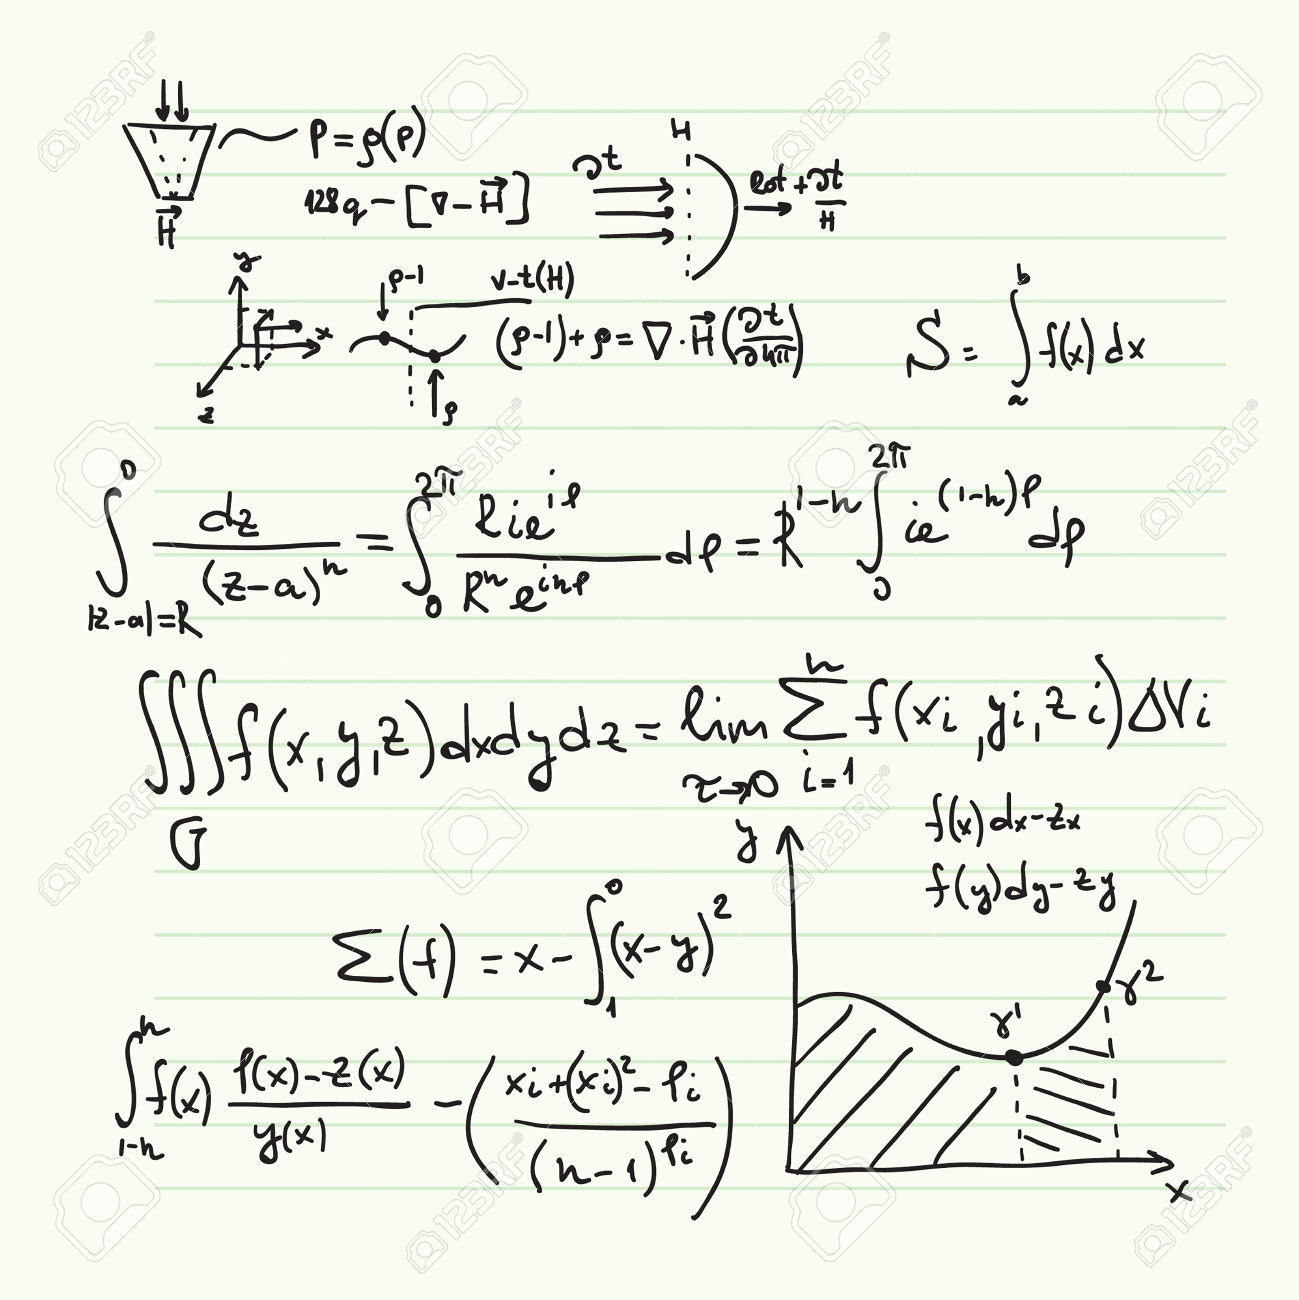 ρ = ρ(ρ)
128q - [∇ - H⃗]
H⃗
∂t
H
lot + ∂t/H
y
x
z
ρ-1
v-t(H)
(ρ-1) + ρ = ∇ · H⃗ (∂t/∂hπ)
ρ
S = ∫_a^b f(x) dx
∫_{|z-a|=R}^0 dz/(z-a)^n = ∫_0^{2π} Rie^{iρ}/(R^n e^{inρ}) dρ = R^{1-n} ∫_0^{2π} ie^{(1-n)ρ} dρ
∭_G f(x,y,z)dxdydz = lim_{τ→0} Σ_{i=1}^n f(xi,yi,zi)ΔVi
f(x)dx-zx
f(y)dy-zy
y
Σ(f) = x - ∫_1^0 (x-y)^2
γ^2
γ'
∫_{1-n}^n f(x) ρ(x)-z(x)/y(x) - (xi+(xi)^2-ρi/(n-1)^{ρi})
x
123RF